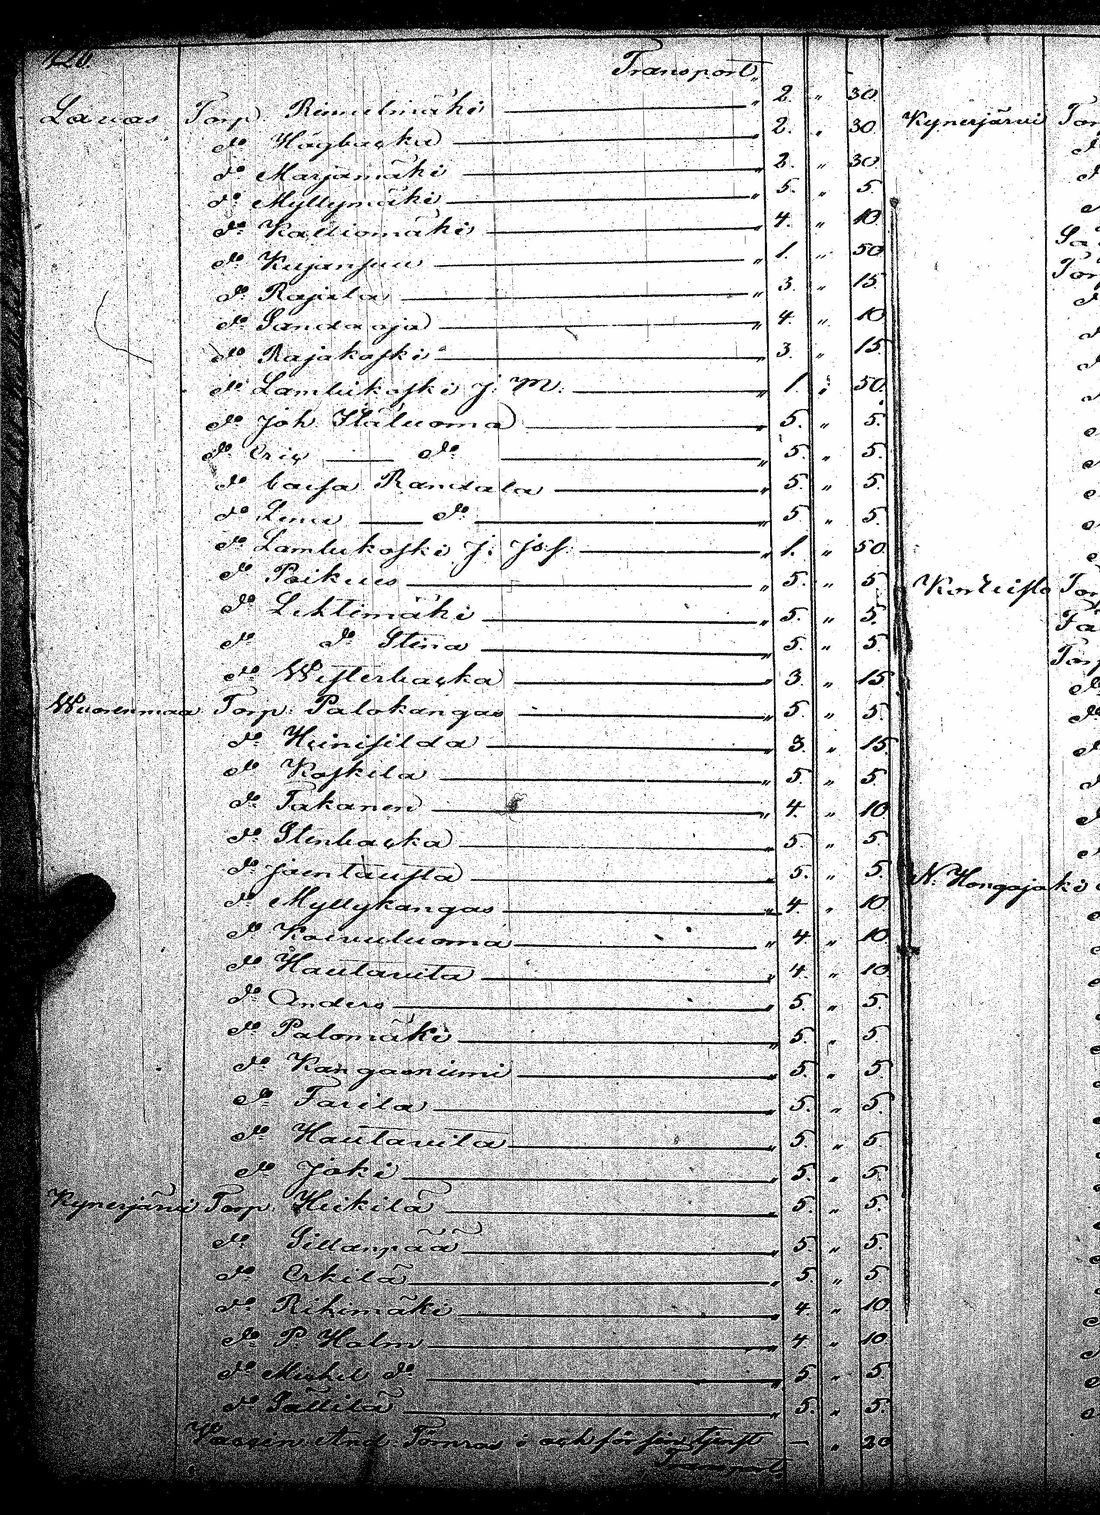 426
Transport
Lavas Torp Rimmelmäki " 2. " 30
do Högbacka " 2. " 30
do Marjamäki " 2 " 30
do Myllymäki " 5. " 5.
do Kalliomäki " 4. " 10
do Kujansuu " 1. " 50
do Rajala " 3. " 15
do Sandaoja " 4. " 10
do Rajakoski " 3. " 15
do Lambikoski J: M: " 1. " 50
do Joh Ylaluoma " 5. " 5.
do Eric do " 5. " 5.
do Caisa Randala " 5. " 5.
do Lena do " 5 " 5.
do Lambikoski J: Jos: " 1. " 50
do Poikus " 5. " 5
do Lehtimäki " 5. " 5.
do do Stina " 5. " 5
do Westerbacka " 3. " 15
Wuorenmaa Torp: Palokangas " 5. " 5.
do Heinisilda " 3. " 15.
do Koskila " 5. " 5.
do Takanen " 4. " 10
do Stenbacka " 5. " 5.
do Jaentausta " 5. " 5.
do Myllykangas " 4. " 10
do Koivuluoma " 4 " 10
do Hautaviita " 4. " 10
do Anders " 5. " 5.
do Palomäki " 5 " 5
do Kangasniemi " 5. " 5
do Tarila " 5. " 5
do Hautavita " 5. " 5
do Joki " 5. " 5.
Kynerjärvi Torp Heikilä " 5. " 5.
do Sillanpää " 5. " 5.
do Erkilä " 5 " 5
do Rihimäki " 4. " 10
do P. Holm " 4. " 10
do Mickel do " 5 " 5.
do Pättilä " 5. " 5.
And: Tomras i och för " 20
Transport
Kynerjärvi
Korteisto
N: Hongajoki